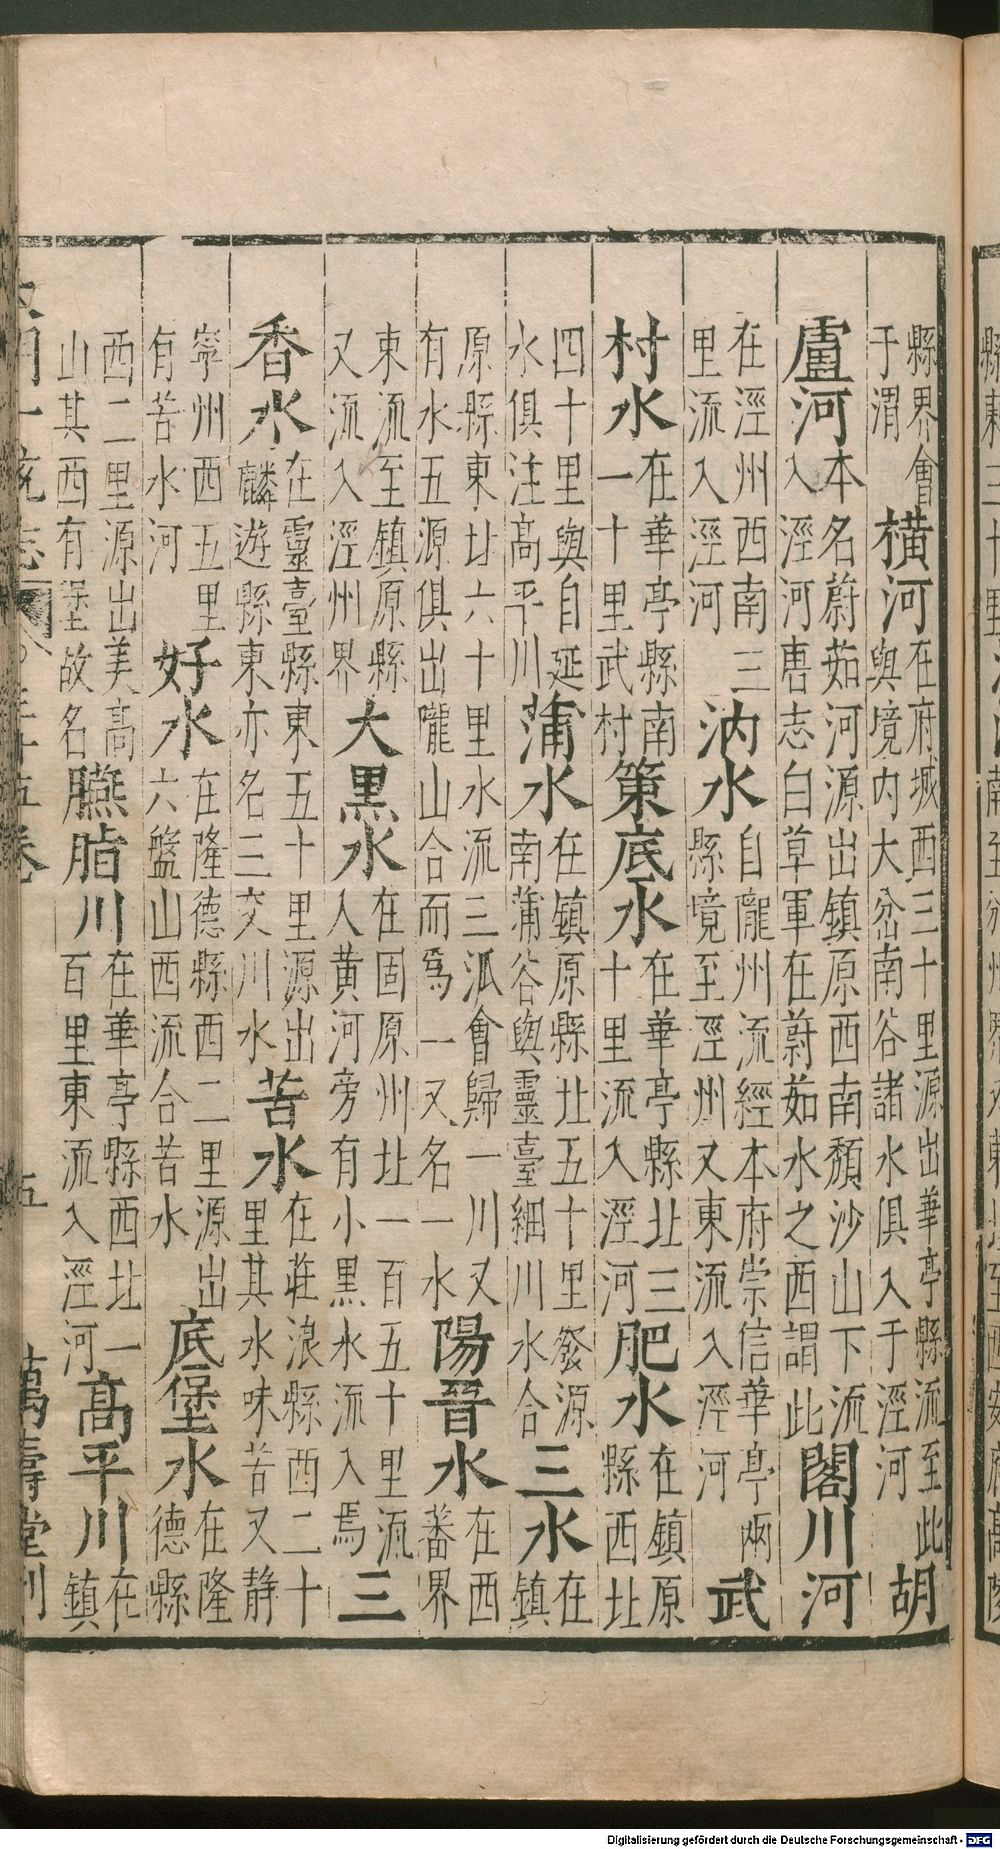 縣界會于渭橫河在府城西三十里源出華亭縣流至此與境內大岔南谷諸水俱入于涇河胡
盧河本名蔚茹河源出鎮原西南頹沙山下流入涇河唐志白草軍在蔚茹水之西謂此閣川河
在涇州西南三里流入涇河汭水自隴州流經本府崇信華亭兩縣境至涇州又東流入涇河武
村水在華亭縣南一十里武村策底水在華亭縣北三十里流入涇河肥水在鎮原縣西北
四十里與自延水俱注高平川蒲水在鎮原縣北五十里發源南蒲谷與靈臺細川水合三水在鎮
原縣東北六十里水流三派會歸一川又有水五源俱出隴山合而爲一又名一水陽晉水在西蕃界
東流至鎮原縣又流入涇州界大黑水在固原州北一百五十里流入黃河旁有小黑水流入焉三
香水在靈臺縣東五十里源出麟遊縣東亦名三交川水苦水在莊浪縣西二十里其水味苦又靜
寧州西五里有苦水河好水在隆德縣西二里源出六盤山西流合苦水底堡水在隆德縣
西二里源出美高山其西有堡故名臙脂川在華亭縣西北一百里東流入涇河高平川在鎮
一統志 五卷 五 萬壽堂刊
Digitalisierung gefördert durch die Deutsche Forschungsgemeinschaft - DFG